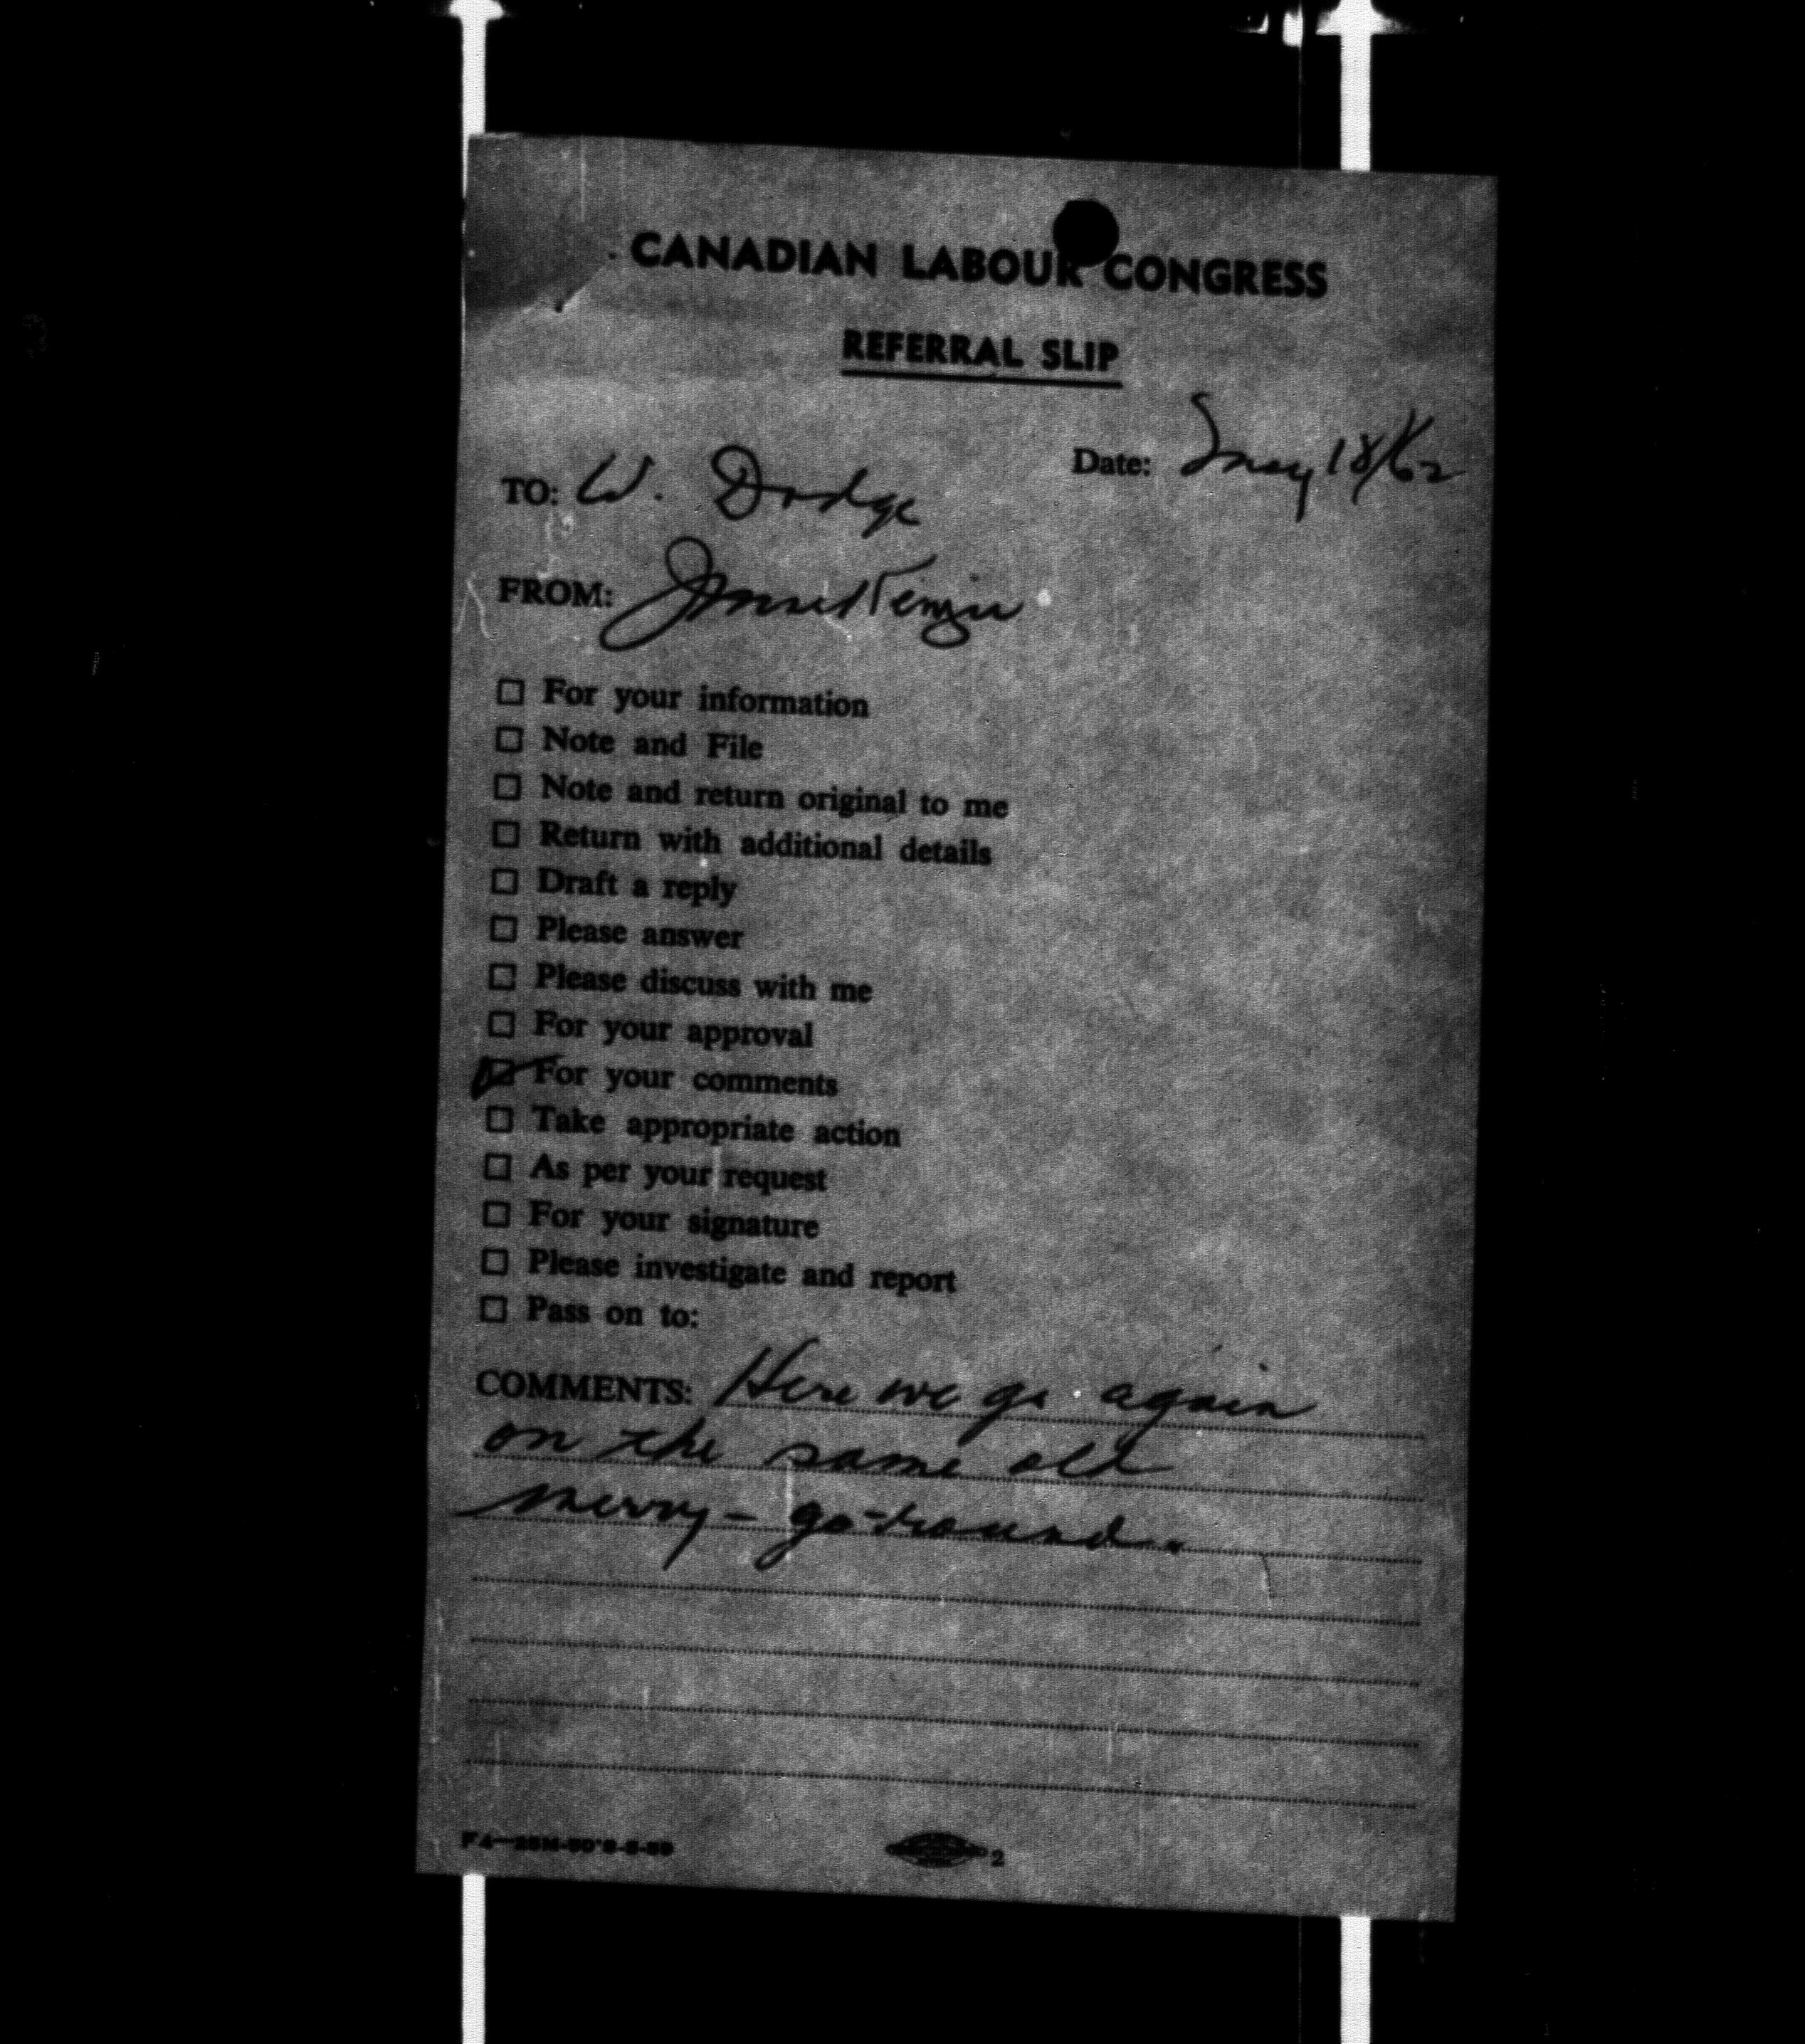 CANADIAN LABOUR CONGRESS
REFERRAL SLIP
Date: May 18/62
TO: W. Dodge
FROM: J MacKenzie
☐ For your information
☐ Note and File
☐ Note and return original to me
☐ Return with additional details
☐ Draft a reply
☐ Please answer
☐ Please discuss with me
☐ For your approval
☑ For your comments
☐ Take appropriate action
☐ As per your request
☐ For your signature
☐ Please investigate and report
☐ Pass on to:
COMMENTS: Here we go again
on the same old
merry-go-round.
2